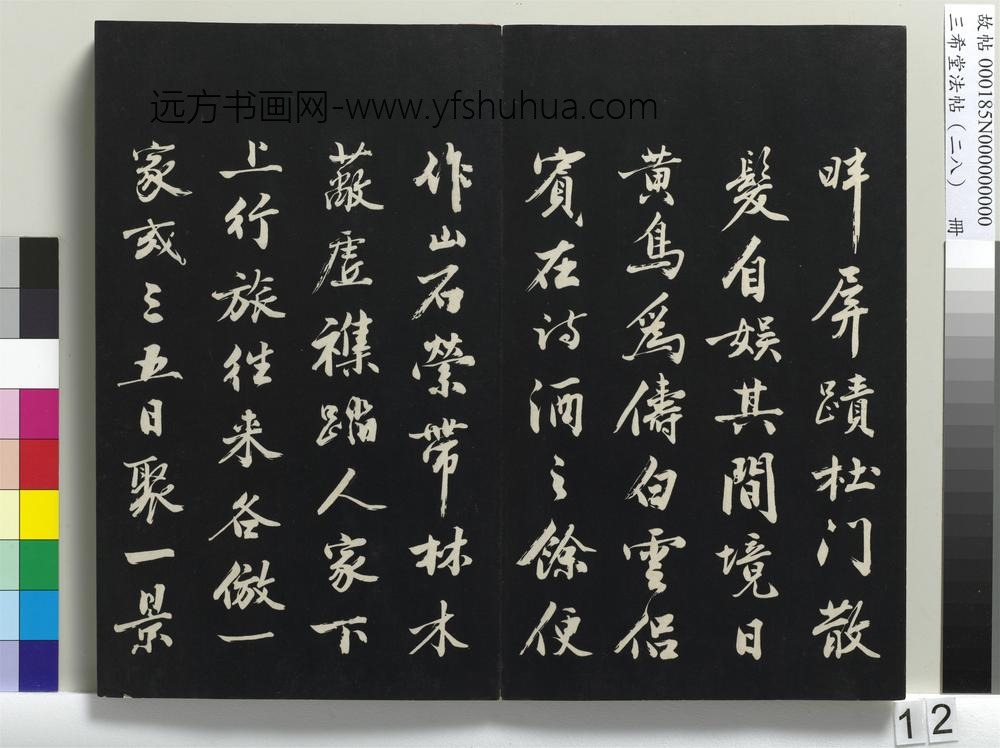 畔屏蹟杜门散
髮自娱其間境日
黄鳥爲儔白雲侣
賓在诗酒之餘便
作山石縈带林木
蔽虗襍踏人家下
上行旅往来各倣一
家或三五日聚一景
远方书画网-www.yfshuhua.com
故帖 000185N000000000
三希堂法帖（二八） 冊
12